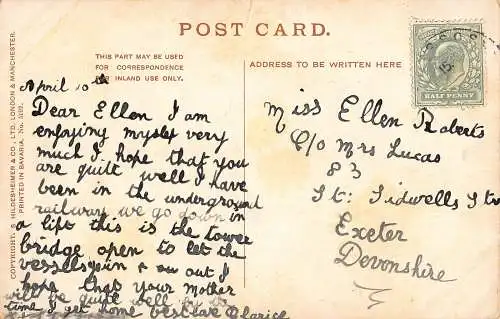 POST CARD.
THIS PART MAY BE USED
FOR CORRESPONDENCE
FOR INLAND USE ONLY.
ADDRESS TO BE WRITTEN HERE
HALF PENNY
COPYRIGHT. S. HILDESHEIMER & CO., LTD. LONDON & MANCHESTER.
PRINTED IN BAVARIA. No.
April 10th
Dear Ellen I am
enjoying myself very
much I hope that you
are quite well I have
been in the underground
railway we go down in
a lift this is the tower
bridge open to let the
vessels in & out I
hope that your mother
will be quite well by the
time I get home best love Clarice
Miss Ellen Roberts
C/o Mrs Lucas
83
St: Sidwells Str
Exeter
Devonshire